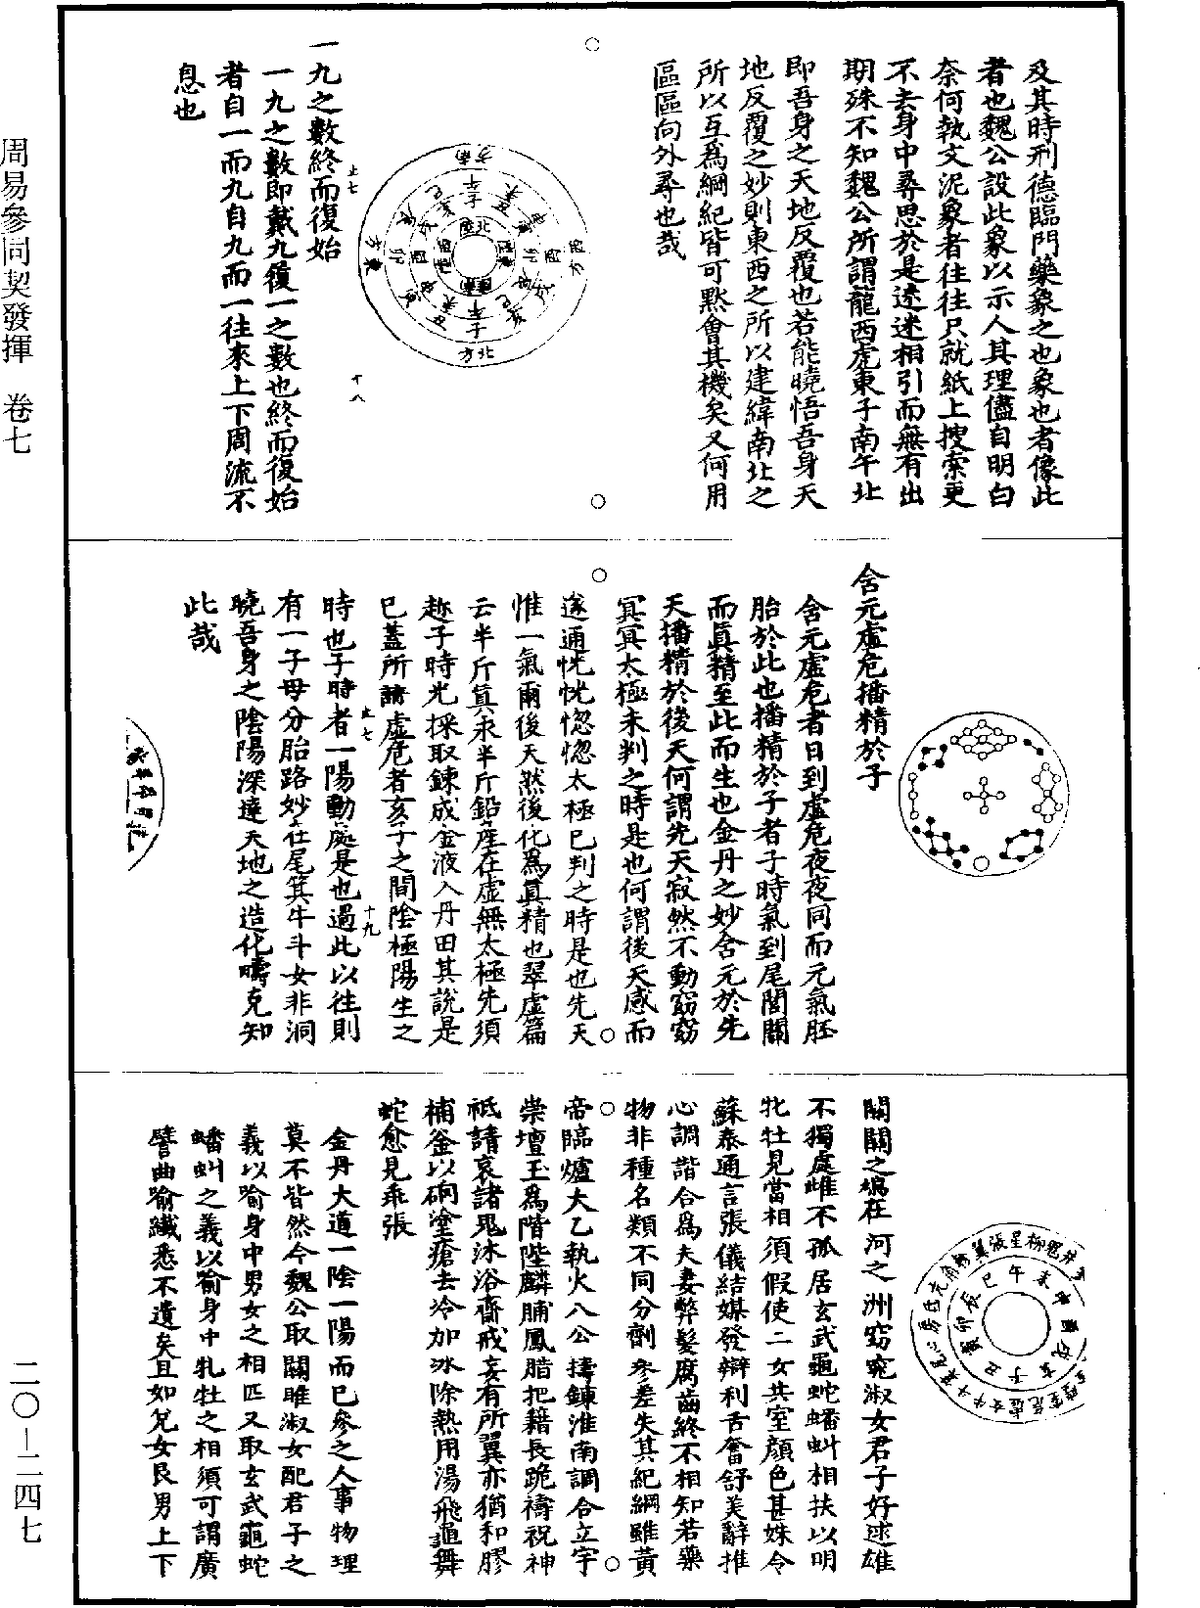 周易參同契發揮　卷七
二〇－二四七
及其時刑德臨門藥象之也象也者像此
者也魏公設此象以示人其理儘自明白
奈何執文泥象者往往只就紙上搜索更
不去身中尋思於是迷迷相引而無有出
期殊不知魏公所謂龍西虎東子南午北
即吾身之天地反覆也若能曉悟吾身天
地反覆之妙則東西之所以建緯南北之
所以互為綱紀皆可默會其機矣又何用
區區向外尋也哉
南方
北方
東方
西方
一九之數終而復始
止七
十八
一九之數即戴九復一之數也終而復始
者自一而九自九而一往來上下周流不
息也
含元虛危播精於子
含元虛危者日到虛危夜夜同而元氣胚
胎於此也播精於子者子時氣到尾閭關
而真精至此而生也金丹之妙含元於先
天播精於後天何謂先天寂然不動窈窈
冥冥太極未判之時是也何謂後天感而
遂通恍恍惚惚太極已判之時是也先天
惟一氣爾後天然後化為真精也翠虛篇
云半斤真汞半斤鉛產在虛無太極先須
趂子時光採取鍊成金液入丹田其說是
已蓋所謂虛危者亥子之間陰極陽生之
時也子時者一陽動處是也過此以往則
止七
十九
有一子母分胎路妙在尾箕牛斗女非洞
曉吾身之陰陽深達天地之造化疇克知
此哉
午未申酉戌亥子丑寅卯辰巳
關關之鳩在河之洲窈窕淑女君子好逑雄
不獨處雌不孤居玄武龜蛇蟠虯相扶以明
牝牡見當相須假使二女共室顏色甚姝令
蘇秦通言張儀結媒發辯利舌奮舒美辭推
心調諧合為夫妻弊髮腐齒終不相知若藥
物非種名類不同分劑參差失其紀綱雖黃
帝臨爐太乙執火八公擣鍊淮南調合立宇
崇壇玉為階陛麟脯鳳腊把籍長跪禱祝神
祇請哀諸鬼沐浴齋戒妄有所冀亦猶和膠
補釜以硇塗瘡去冷加冰除熱用湯飛龜舞
蛇愈見乖張
金丹大道一陰一陽而已參之人事物理
莫不皆然今魏公取關雎淑女配君子之
義以喻身中男女之相匹又取玄武龜蛇
蟠虯之義以喻身中牝牡之相須可謂廣
譬曲喻纖悉不遺矣且如兌女艮男上下